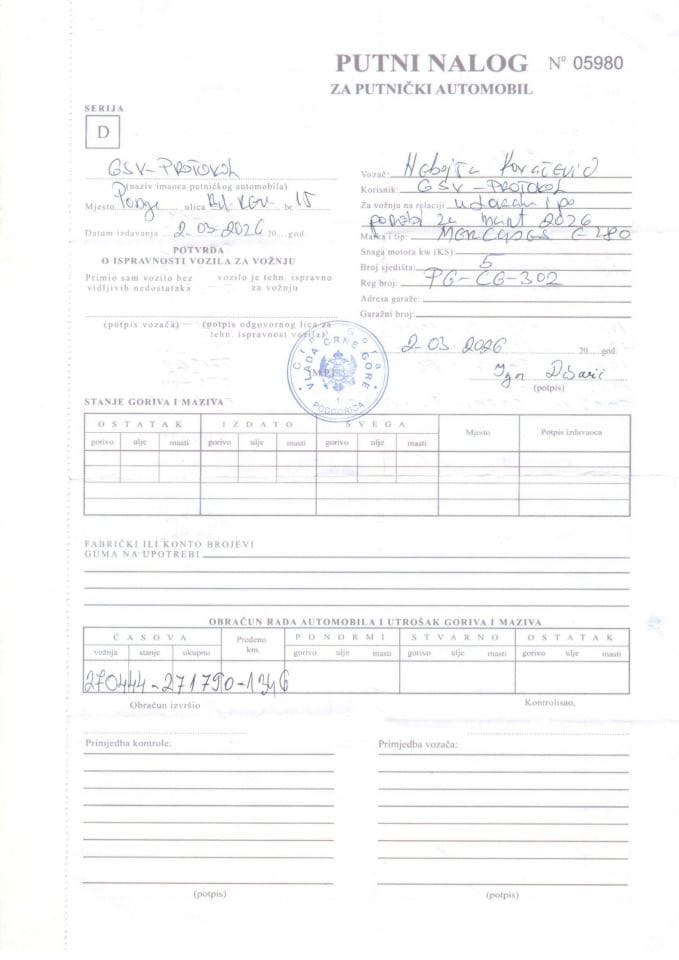 PUTNI NALOG № 05980
ZA PUTNIČKI AUTOMOBIL
SERIJA
D
GSV-PROTOKOL
(naziv imaoca putničkog automobila)
Mjesto Podge ulica br. 15
Datum izdavanja 2.03.2026 20....god.
POTVRDA
O ISPRAVNOSTI VOZILA ZA VOŽNJU
Primio sam vozilo bez vidljivih nedostataka
vozilo je tehn. ispravno za vožnju
(potpis vozača)
(potpis odgovornog lica za tehn. ispravnost vozila)
Vozač: Nebojša Kovačević
Korisnik: GSV-PROTOKOL
Za vožnju na relaciji udaram i po
potrebi za mart 2026
Marka i tip: MERCEDES E 280
Snaga motora kw (KS):
Broj sjedišta: 5
Reg broj: PG-CG-302
Adresa garaže:
Garažni broj:
2.03.2026 20....god.
Igor
(potpis)
Crna Gora
VLADA CRNE GORE
(M.P.)
1
PODGORICA
STANJE GORIVA I MAZIVA
OSTATAK IZDATO SVEGA Mjesto Potpis izdavaoca
gorivo ulje masti gorivo ulje masti gorivo ulje masti
FABRIČKI ILI KONTO BROJEVI
GUMA NA UPOTREBI
OBRAČUN RADA AUTOMOBILA I UTROŠAK GORIVA I MAZIVA
ČASOVA Pređeno km. PO NORMI STVARNO OSTATAK
vožnja stanje ukupno gorivo ulje masti gorivo ulje masti gorivo ulje masti
270444-271790-1346
Obračun izvršio
Kontrolisao,
Primjedba kontrole:
Primjedba vozača:
(potpis)
(potpis)